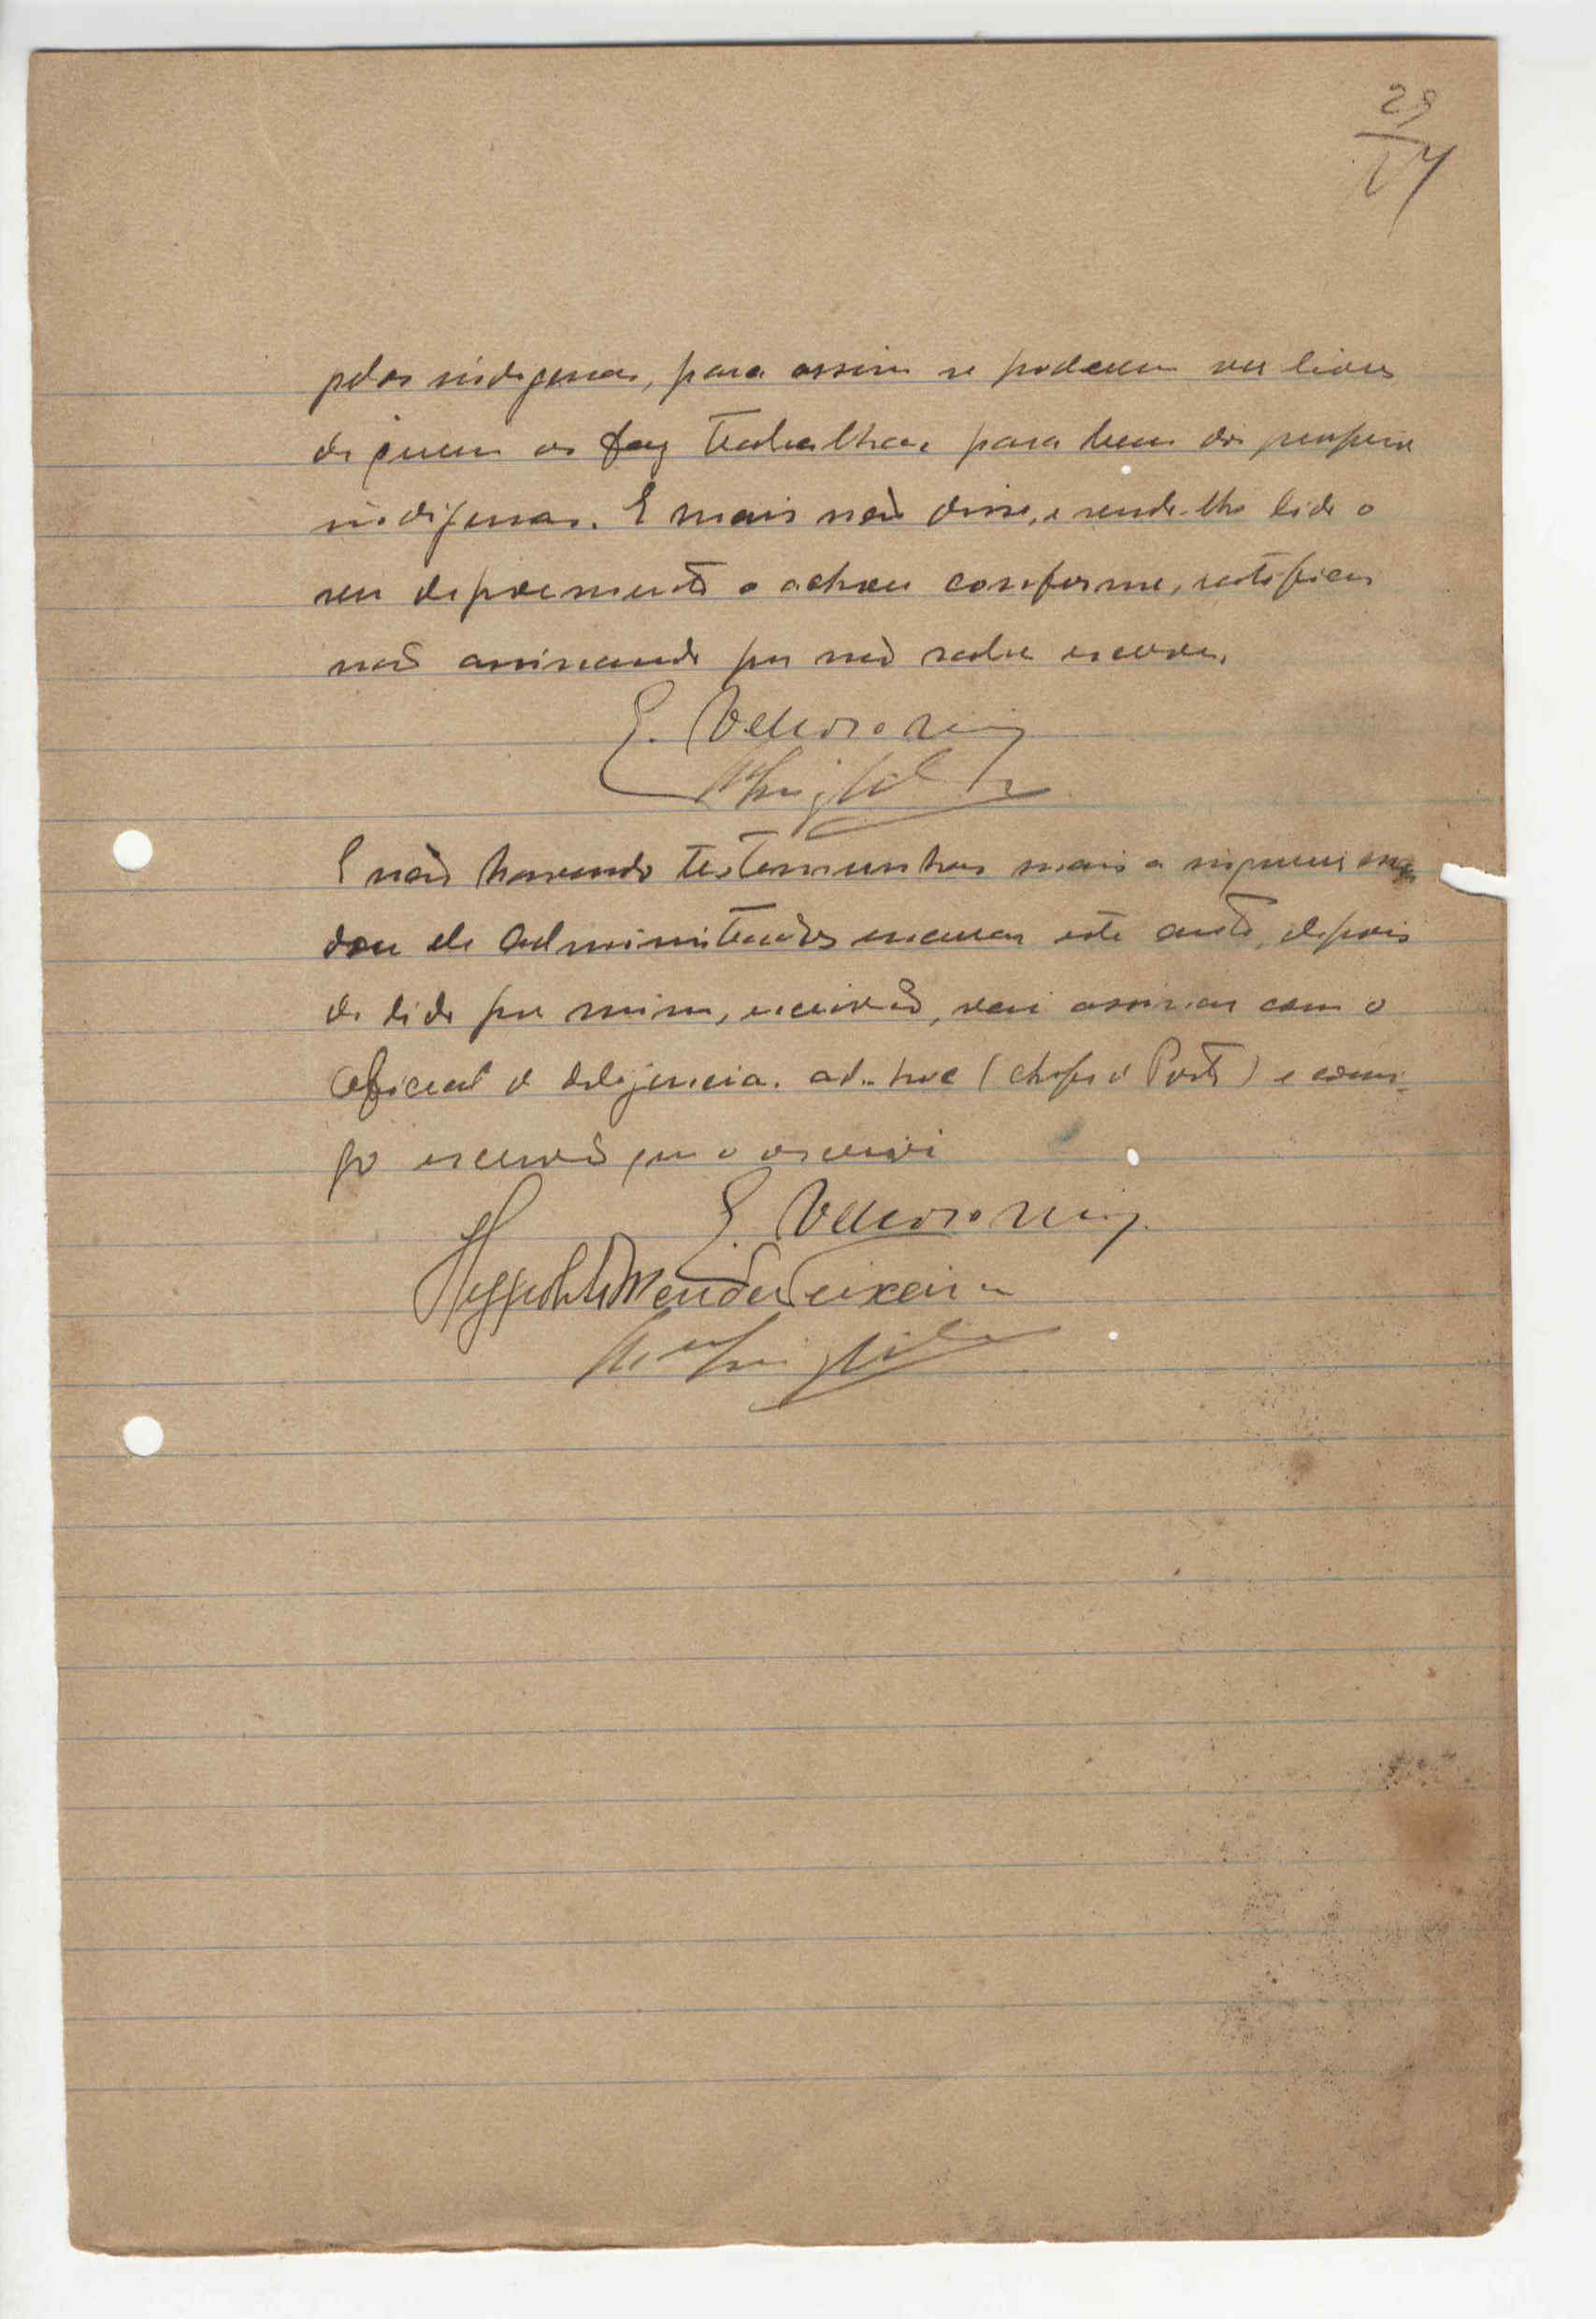 29
pelos indigenas, para assim se poderem ver livres
de quem os faz trabalhar para bem dos proprios
indigenas. E mais não disse, e sendo-lhe lido o
seu depoimento o achou conforme, ratificou
não assinando por não saber escrever.
E. Velloso
E não havendo testemunhas mais a inquirir man
dou ele Administrador encerrar este auto, depois
de lido por mim, escrivão, vai assinar com o
oficial de deligencia. ad-hoc (chefe d Posto) e comi-
go escrivão que o escrevi
E. Velloso
Hyppolito Mendes Teixeira